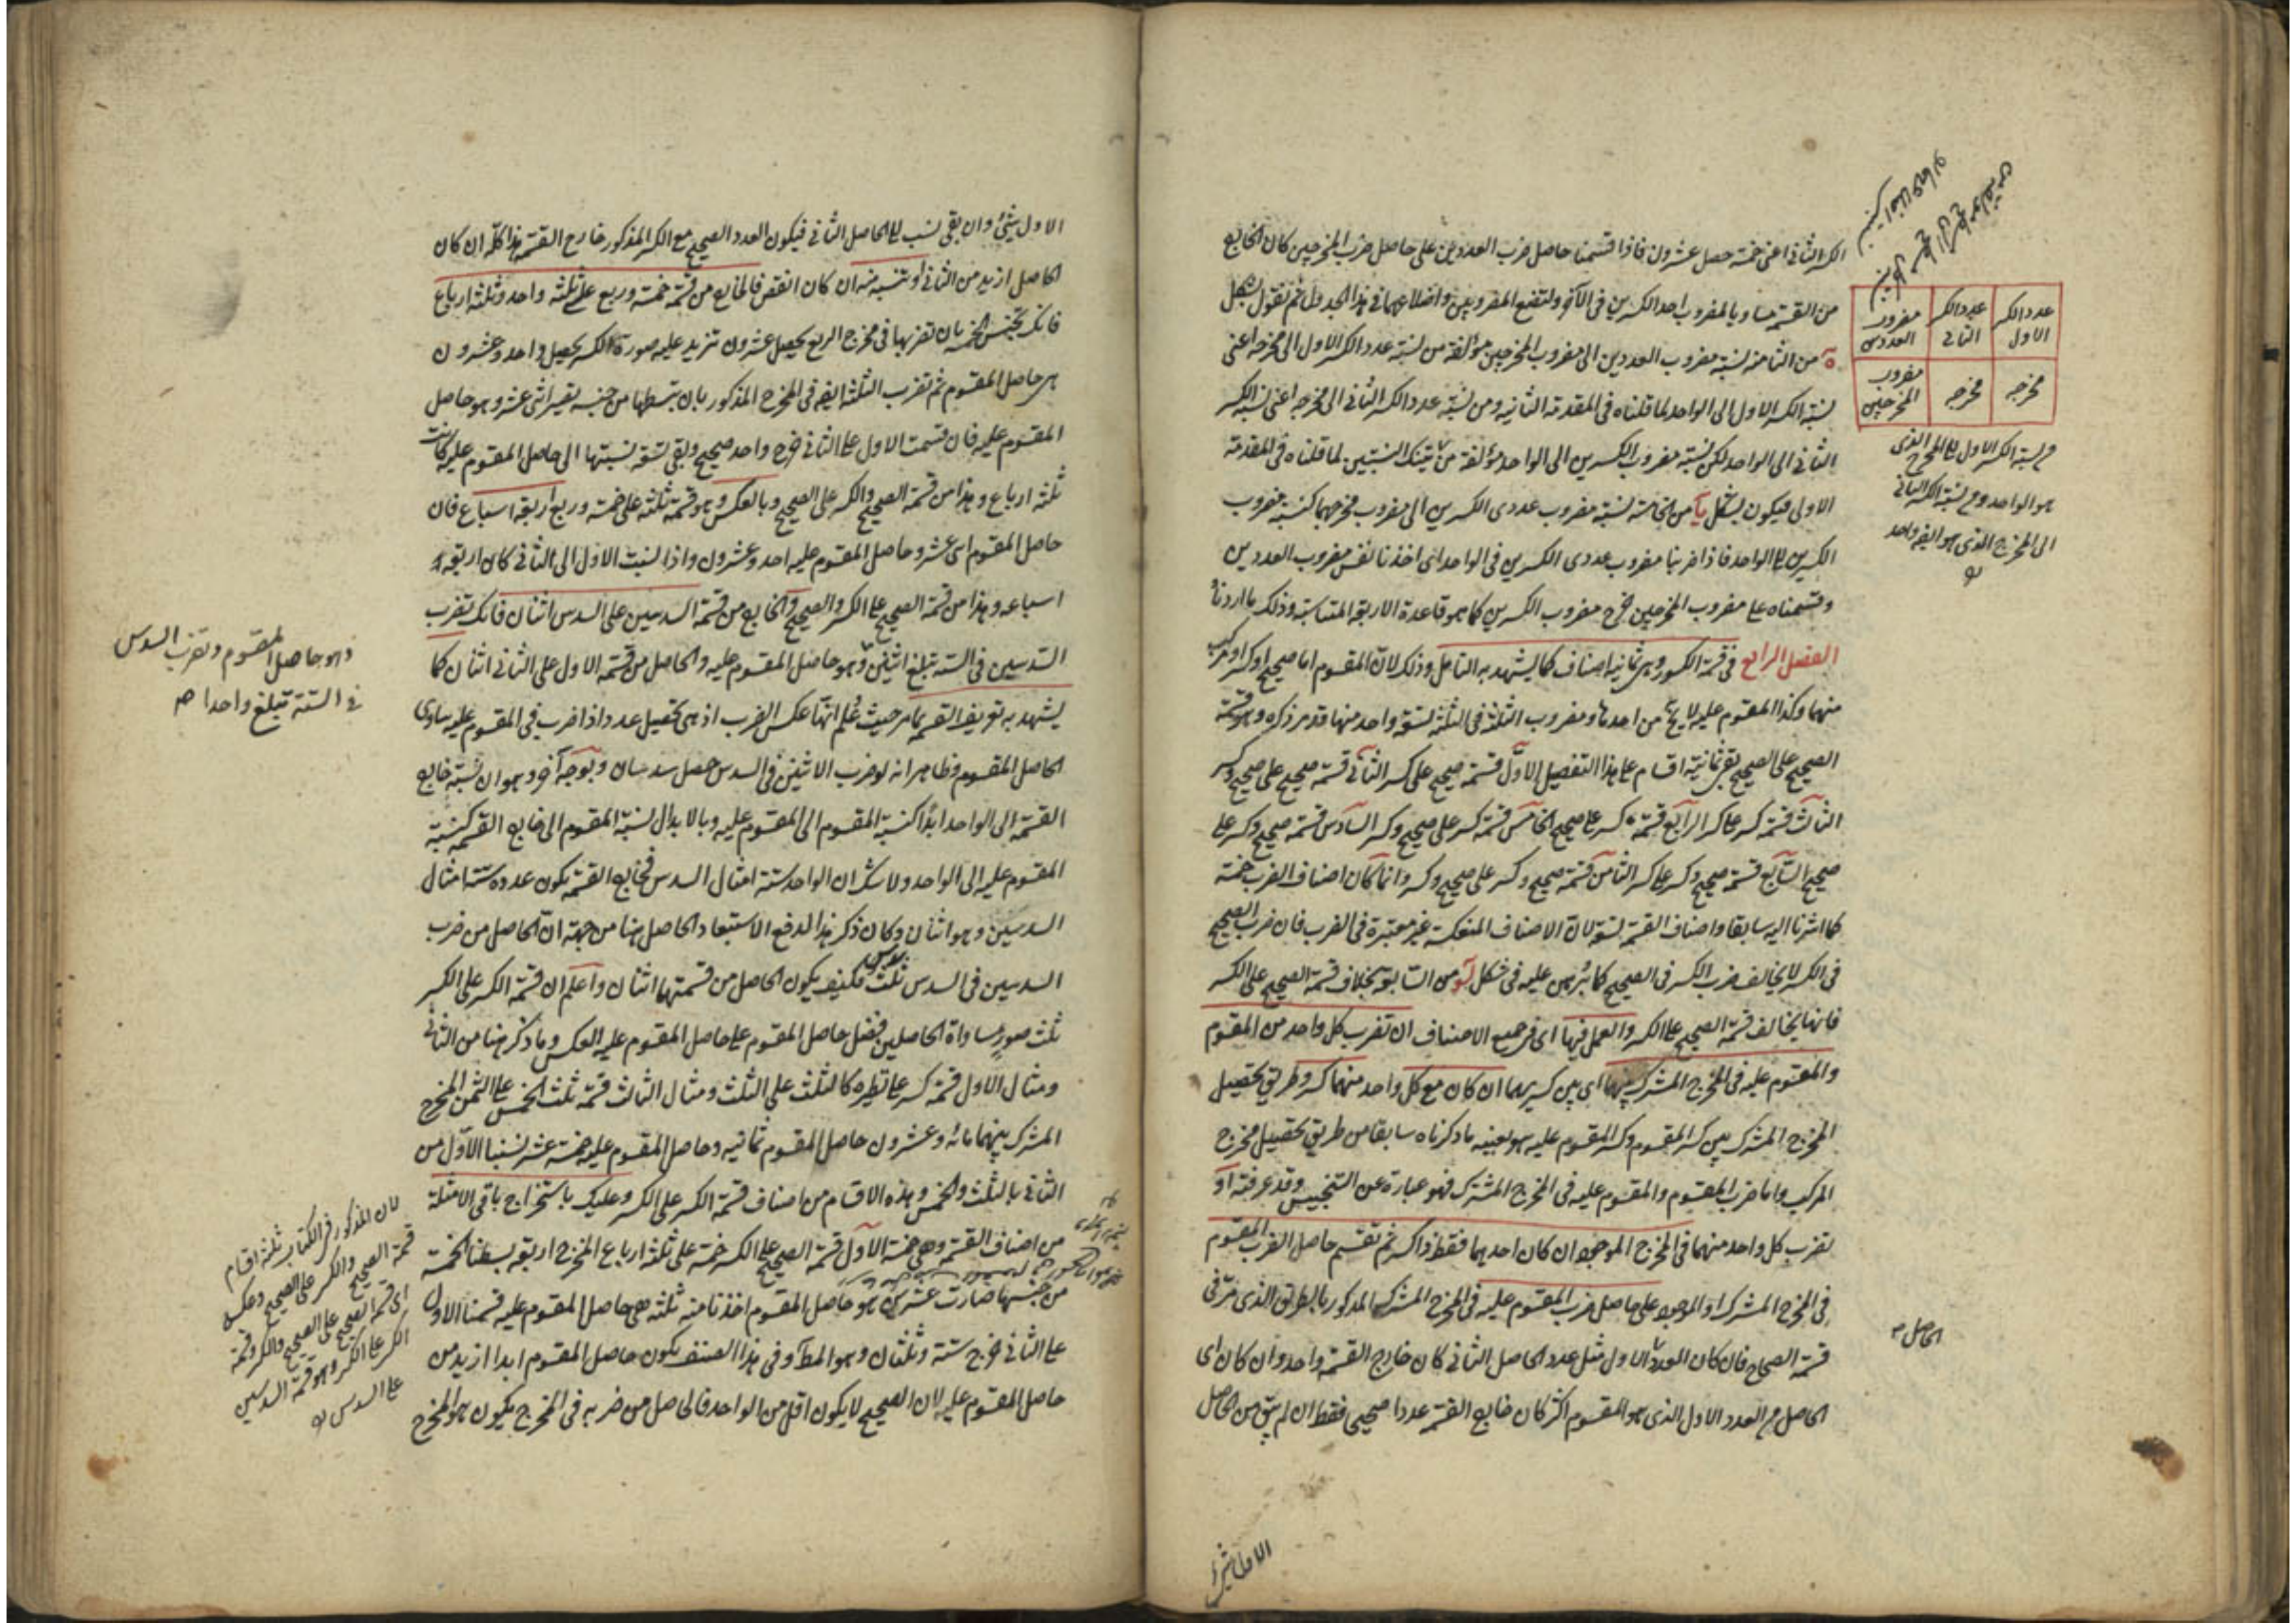 الكسر الثانى اعنى خمسة حصل عشرون فاذا قسمنا حاصل ضرب العددين على حاصل ضرب المخرجين كان الخارج
من القسمة مساويا لمضروب احد الكسرين فى الآخر ولنضع المضروبين واضلاعهما فى هذا الجدول ثم نقول بشكل
ه من الثامنة نسبة مضروب العددين الى مضروب المخرجين مؤلفة من نسبة عدد الكسر الاول الى مخرجه اعنى
نسبة الكسر الاول الى الواحد لما قلناه فى المقدمة الثانية ومن نسبة عدد الكسر الثانى الى مخرجه اعنى نسبة الكسر
الثانى الى الواحد لكن نسبة مضروب الكسرين الى الواحد مؤلفة من تينك النسبتين لما قلناه فى المقدمة
الاولى فيكون بشكل يا من الخامسة نسبة مضروب عددى الكسرين الى مضروب مخرجهما كنسبة مضروب
الكسرين الى الواحد فاذا ضربنا مضروب عددى الكسرين فى الواحد اى اخذنا نفس مضروب العددين
وقسمناه على مضروب المخرجين خرج مضروب الكسرين كما هو قاعدة الاربعة المتناسبة وذلك ما اردناه
الفصل الرابع فى قسمة الكسور وهى ثمانية اصناف كما يشهد به التامل وذلك لان المقسوم اما صحيح او كسر او مركب
منهما وكذا المقسوم عليه لا يخ من احدها ومضروب الثلثة فى الثلثة تسعة واحد منها قد مر ذكره وهو قسمة
الصحيح على الصحيح بقى ثمانية اقسام على هذا التفصيل الاول قسمة صحيح على كسر الثانى قسمة صحيح على صحيح وكسر
الثالث قسمة كسر على كسر الرابع قسمة كسر على صحيح الخامس قسمة كسر على صحيح وكسر السادس قسمة صحيح وكسر على
صحيح السابع قسمة صحيح وكسر على كسر الثامن قسمة صحيح وكسر على صحيح وكسر وانما كان اصناف الضرب خمسة
كما اشرنا اليه سابقا واصناف القسمة تسعة لان الاصناف المنعكسة غير معتبرة فى الضرب فان ضرب الصحيح
فى الكسر لا يخالف ضرب الكسر فى الصحيح كما برهن عليه فى شكل من السابعة بخلاف قسمة الصحيح على الكسر
فانها يخالف قسمة الصحيح على الكسر والعمل فيها اى فى جميع الاصناف ان تضرب كل واحد من المقسوم
والمقسوم عليه فى المخرج المشترك بينهما اى بين كسريهما ان كان مع كل واحد منهما كسر وطريق تحصيل
المخرج المشترك بين كسر المقسوم وكسر المقسوم عليه هو بعينه ما ذكرناه سابقا من طريق تحصيل مخرج
المركب واما ضرب المقسوم والمقسوم عليه فى المخرج المشترك فهو عبارة عن التجنيس وقد عرفته او
تضرب كل واحد منهما فى المخرج الموجود ان كان احدهما فقط ذا كسر ثم تقسم حاصل الضرب المقسوم
فى المخرج المشترك او الموجود على حاصل ضرب المقسوم عليه فى المخرج المشترك المذكور بالطريق الذى مر فى
قسمة الصحاح فان كان العدد الاول مثل عدد الحاصل الثانى كان خارج القسمة واحد وان كان اى
الحاصل م العدد الاول الذى هو المقسوم اكثر كان خارج القسمة عددا صحيحا فقط ان لم يبق من الحاصل
عدد الكسر الاول
عدد الكسر الثانى
مضروب العددين
مخرجه
مخرجه
مضروب المخرجين
م نسبة الكسر الاول الى المخرج الذى
هو الواحد وم نسبة الكسر الثانى
الى المخرج الذى هو ايضه واحد
الحاصل م
الاول شئ
الاول شئ وان بقى نسب الى الحاصل الثانى فيكون العدد الصحيح مع الكسر المذكور خارج القسمة هذا كله ان كان
الحاصل ازيد من الثانى او تنسبه منه ان كان انقص فالخارج من قسمة خمسة وربع على ثلثة واحد وثلثة ارباع
فانك تجنس الخمسة بان تضربها فى مخرج الربع يحصل عشرون تزيد عليه صورة الكسر يحصل واحد وعشرون
هى حاصل المقسوم ثم تضرب الثلثة ايضه فى المخرج المذكور بان تبسطها من جنسه يصير اثنى عشر وهو حاصل
المقسوم عليه فان قسمت الاول على الثانى خرج واحد صحيح وبقى تسعة نسبتها الى حاصل المقسوم عليه كانت
ثلثة ارباع وهذا من قسمة الصحيح والكسر على الصحيح وبالعكس وهو قسمة ثلثة على خمسة وربع اربعة اسباع فان
حاصل المقسوم اثنى عشر وحاصل المقسوم عليه احد وعشرون واذا نسبت الاول الى الثانى كان اربعة
اسباعه وهذا من قسمة الصحيح على الكسر والصحيح والخارج من قسمة السدسين على السدس اثنان فانك تضرب
السدسين فى الستة تبلغ اثنين وهو حاصل المقسوم عليه والحاصل من قسمة الاول على الثانى اثنان كما
يشهد به تعريف القسمة بما مر حيث علم انها عكس الضرب اذ هى تحصيل عدد اذا ضرب فى المقسوم عليه ساوى
الحاصل المقسوم وظاهر انه لو ضرب الاثنين فى السدس حصل سدسان وبوجه آخر وهو ان نسبة خارج
القسمة الى الواحد ابدا كنسبة المقسوم الى المقسوم عليه وبالابدال نسبة المقسوم الى خارج القسمة كنسبة
المقسوم عليه الى الواحد ولا شك ان الواحد ستة امثال السدس فخارج القسمة يكون عدده ستة امثال
السدسين وهو اثنان وكان ذكر هذا لدفع الاستبعاد الحاصل ههنا من جهة ان الحاصل من ضرب
السدسين فى السدس ثلث سدس فكيف يكون الحاصل من قسمتهما اثنان واعلم ان قسمة الكسر على الكسر
ثلث صور مساواة الحاصلين فضل حاصل المقسوم على حاصل المقسوم عليه العكس وما ذكر ههنا من الثانى
ومثال الاول قسمة كسر على نظيره كالثلث على الثلث ومثال الثالث قسمة ثلث الخمس على الثمن المخرج
المشترك بينهما مائة وعشرون حاصل المقسوم ثمانية وحاصل المقسوم عليه خمسة عشر نسبنا الاول من
الثانى بالثلث والخمس وهذه الاقسام من اصناف قسمة الكسر على الكسر وعليك باستخراج باقى الامثلة
من اصناف القسمة وهى خمسة الاول قسمة الصحيح على الكسر خمسة على ثلثة ارباع المخرج اربعة بسطنا الخمسة
من جنسها صارت عشرين هو حاصل المقسوم اخذنا منه ثلثة هى حاصل المقسوم عليه قسمنا الاول
على الثانى خرج ستة وثلثان وهو المط وفى هذا الصنف يكون حاصل المقسوم ابدا ازيد من
حاصل المقسوم عليه لان الصحيح لا يكون اقل من الواحد فالحاصل من ضربه فى المخرج يكون هو المخرج
وهو حاصل المقسوم وتضرب السدس
فى الستة تبلغ واحدا صح
لان المذكور فى الكتاب ثلثة اقسام
قسمة الصحيح والكسر على الصحيح وعكسه
اى قسمة الصحيح على الصحيح والكسر وقسمة
الكسر على الكسر وهو قسمة السدسين
على السدس